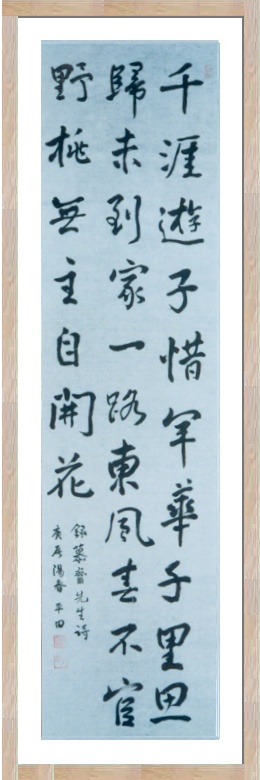 千涯遊子惜年華千里思
歸未到家一路東風春不官
野桃無主自開花
錄慕齋先生詩
庚辰陽春 平田